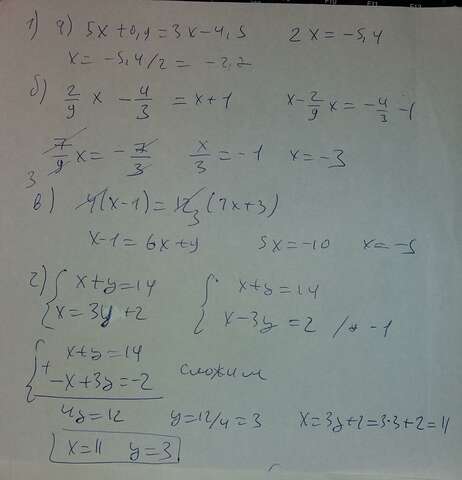 1) а) 5x + 0,9 = 3x - 4,5 2x = -5,4
x = -5,4/2 = -2,7
б) 2/9 x - 4/3 = x + 1 x - 2/9 x = -4/3 - 1
7/9 x = -7/3 x/3 = -1 x = -3
3
в) 4(x-1) = 12 3 (7x+3)
x-1 = 6x+9 5x = -10 x = -5
г) { x+y = 14 { x+y = 14
x = 3y + 2 x - 3y = 2 /* -1
{ x+y = 14
+ -x+3y = -2 сложим
4y = 12 y = 12/4 = 3 x = 3y+2 = 3·3+2 = 11
x = 11 y = 3